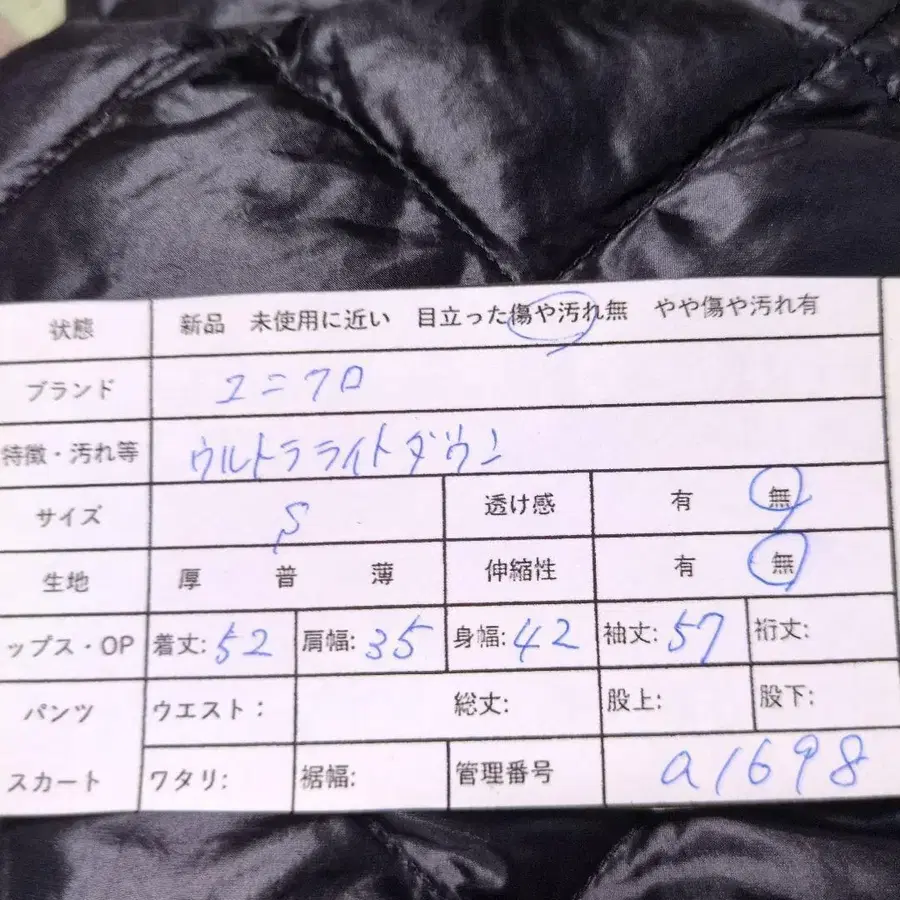 状態 新品 未使用に近い 目立った傷や汚れ無 やや傷や汚れ有
ブランド ユニクロ
特徴・汚れ等 ウルトラライトダウン
サイズ S 透け感 有 無
生地 厚 普 薄 伸縮性 有 無
ップス・OP 着丈:52 肩幅:35 身幅:42 袖丈:57 裄丈:
パンツ ウエスト: 総丈: 股上: 股下:
スカート ワタリ: 裾幅: 管理番号 a1698